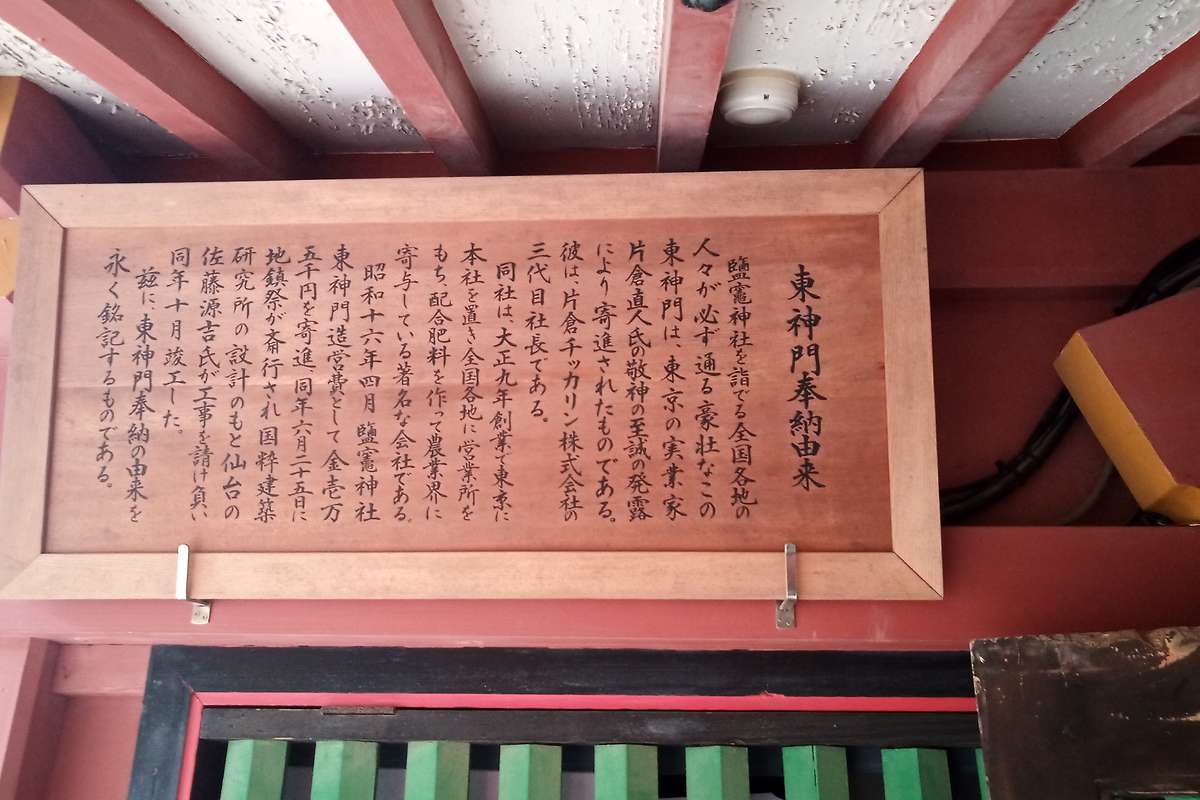 東神門奉納由来
鹽竈神社を詣でる全国各地の
人々が必ず通る豪壮なこの
東神門は、東京の実業家
片倉直人氏の敬神の至誠の発露
により寄進されたものである。
彼は、片倉チッカリン株式会社の
三代目社長である。
同社は、大正九年創業で東京に
本社を置き全国各地に営業所を
もち、配合肥料を作って農業界に
寄与している著名な会社である。
昭和十六年四月 鹽竈神社
東神門造営費として金壱万
五千円を寄進、同年六月二十五日に
地鎮祭が斎行され国粋建築
研究所の設計のもと仙台の
佐藤源吉氏が工事を請け負い
同年十月竣工した。
茲に、東神門奉納の由来を
永く銘記するものである。